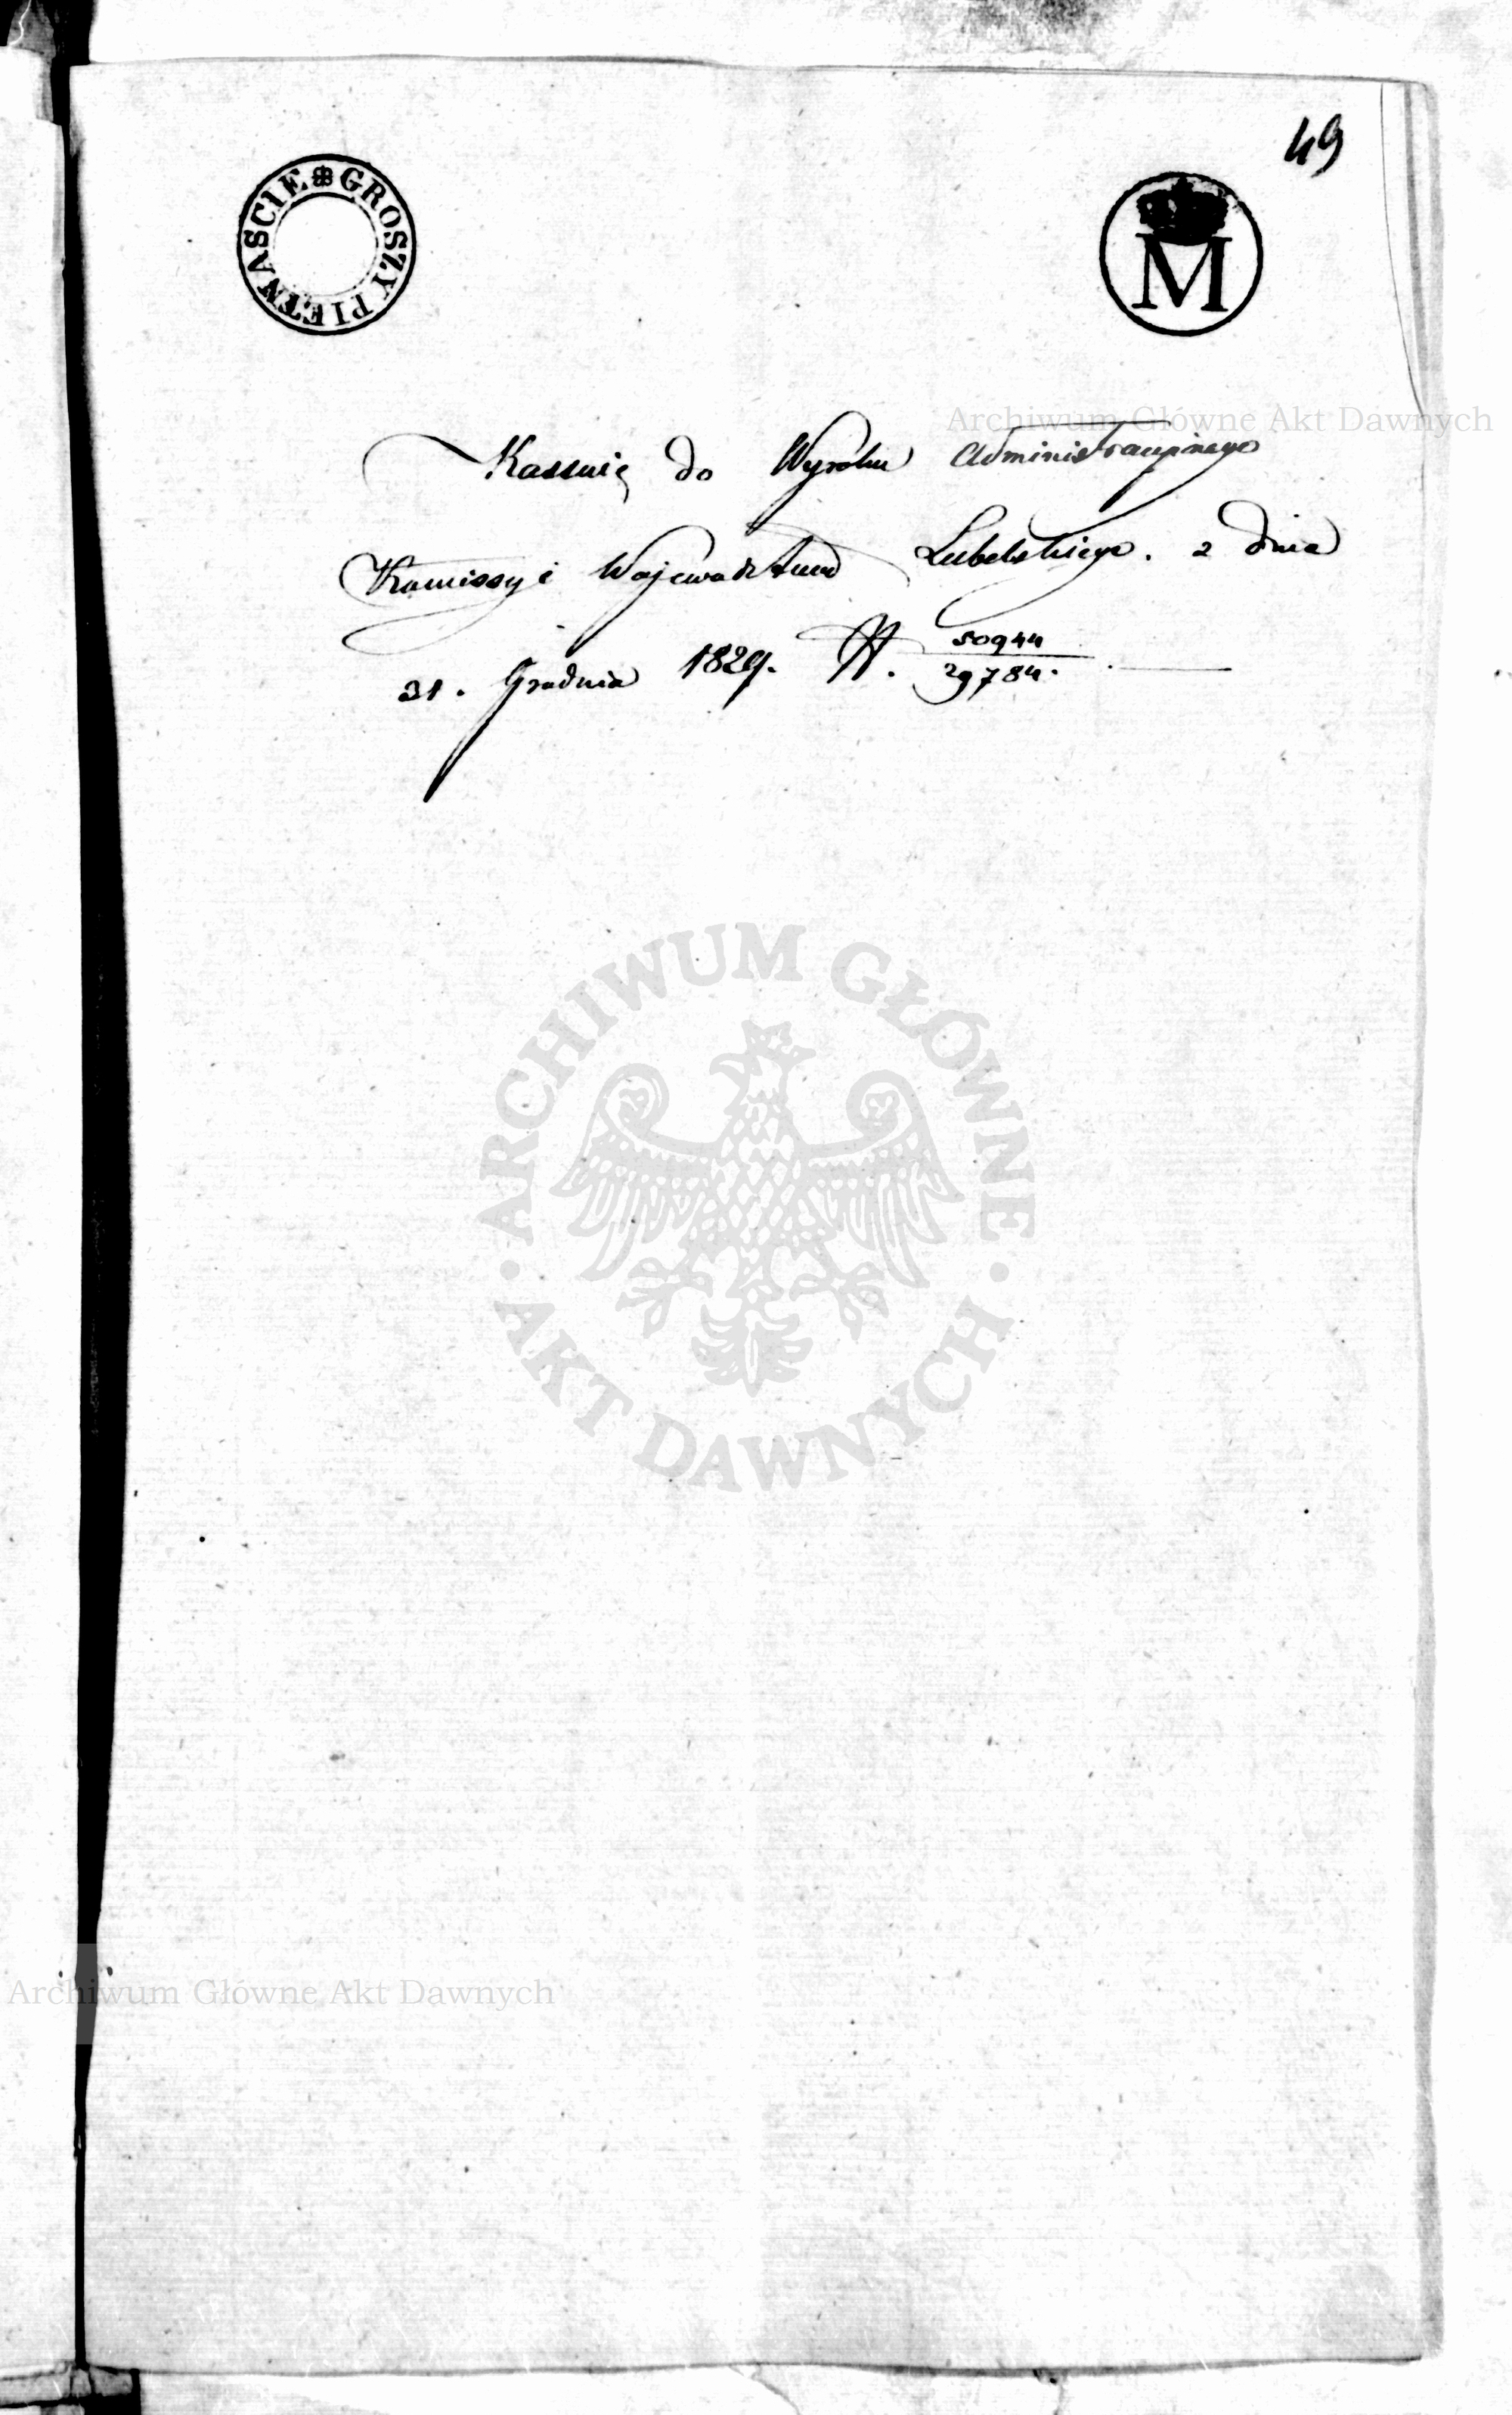 49
GROSZY PIETNASCIE
M
Archiwum Główne Akt Dawnych
do Wyroku Administracyinego
Kommissyi Wojewodztwa Lubelskiego. z dnia
31. Grudnia 1829. N. 50944
29784.
ARCHIWUM GŁÓWNE
AKT DAWNYCH
Archiwum Główne Akt Dawnych